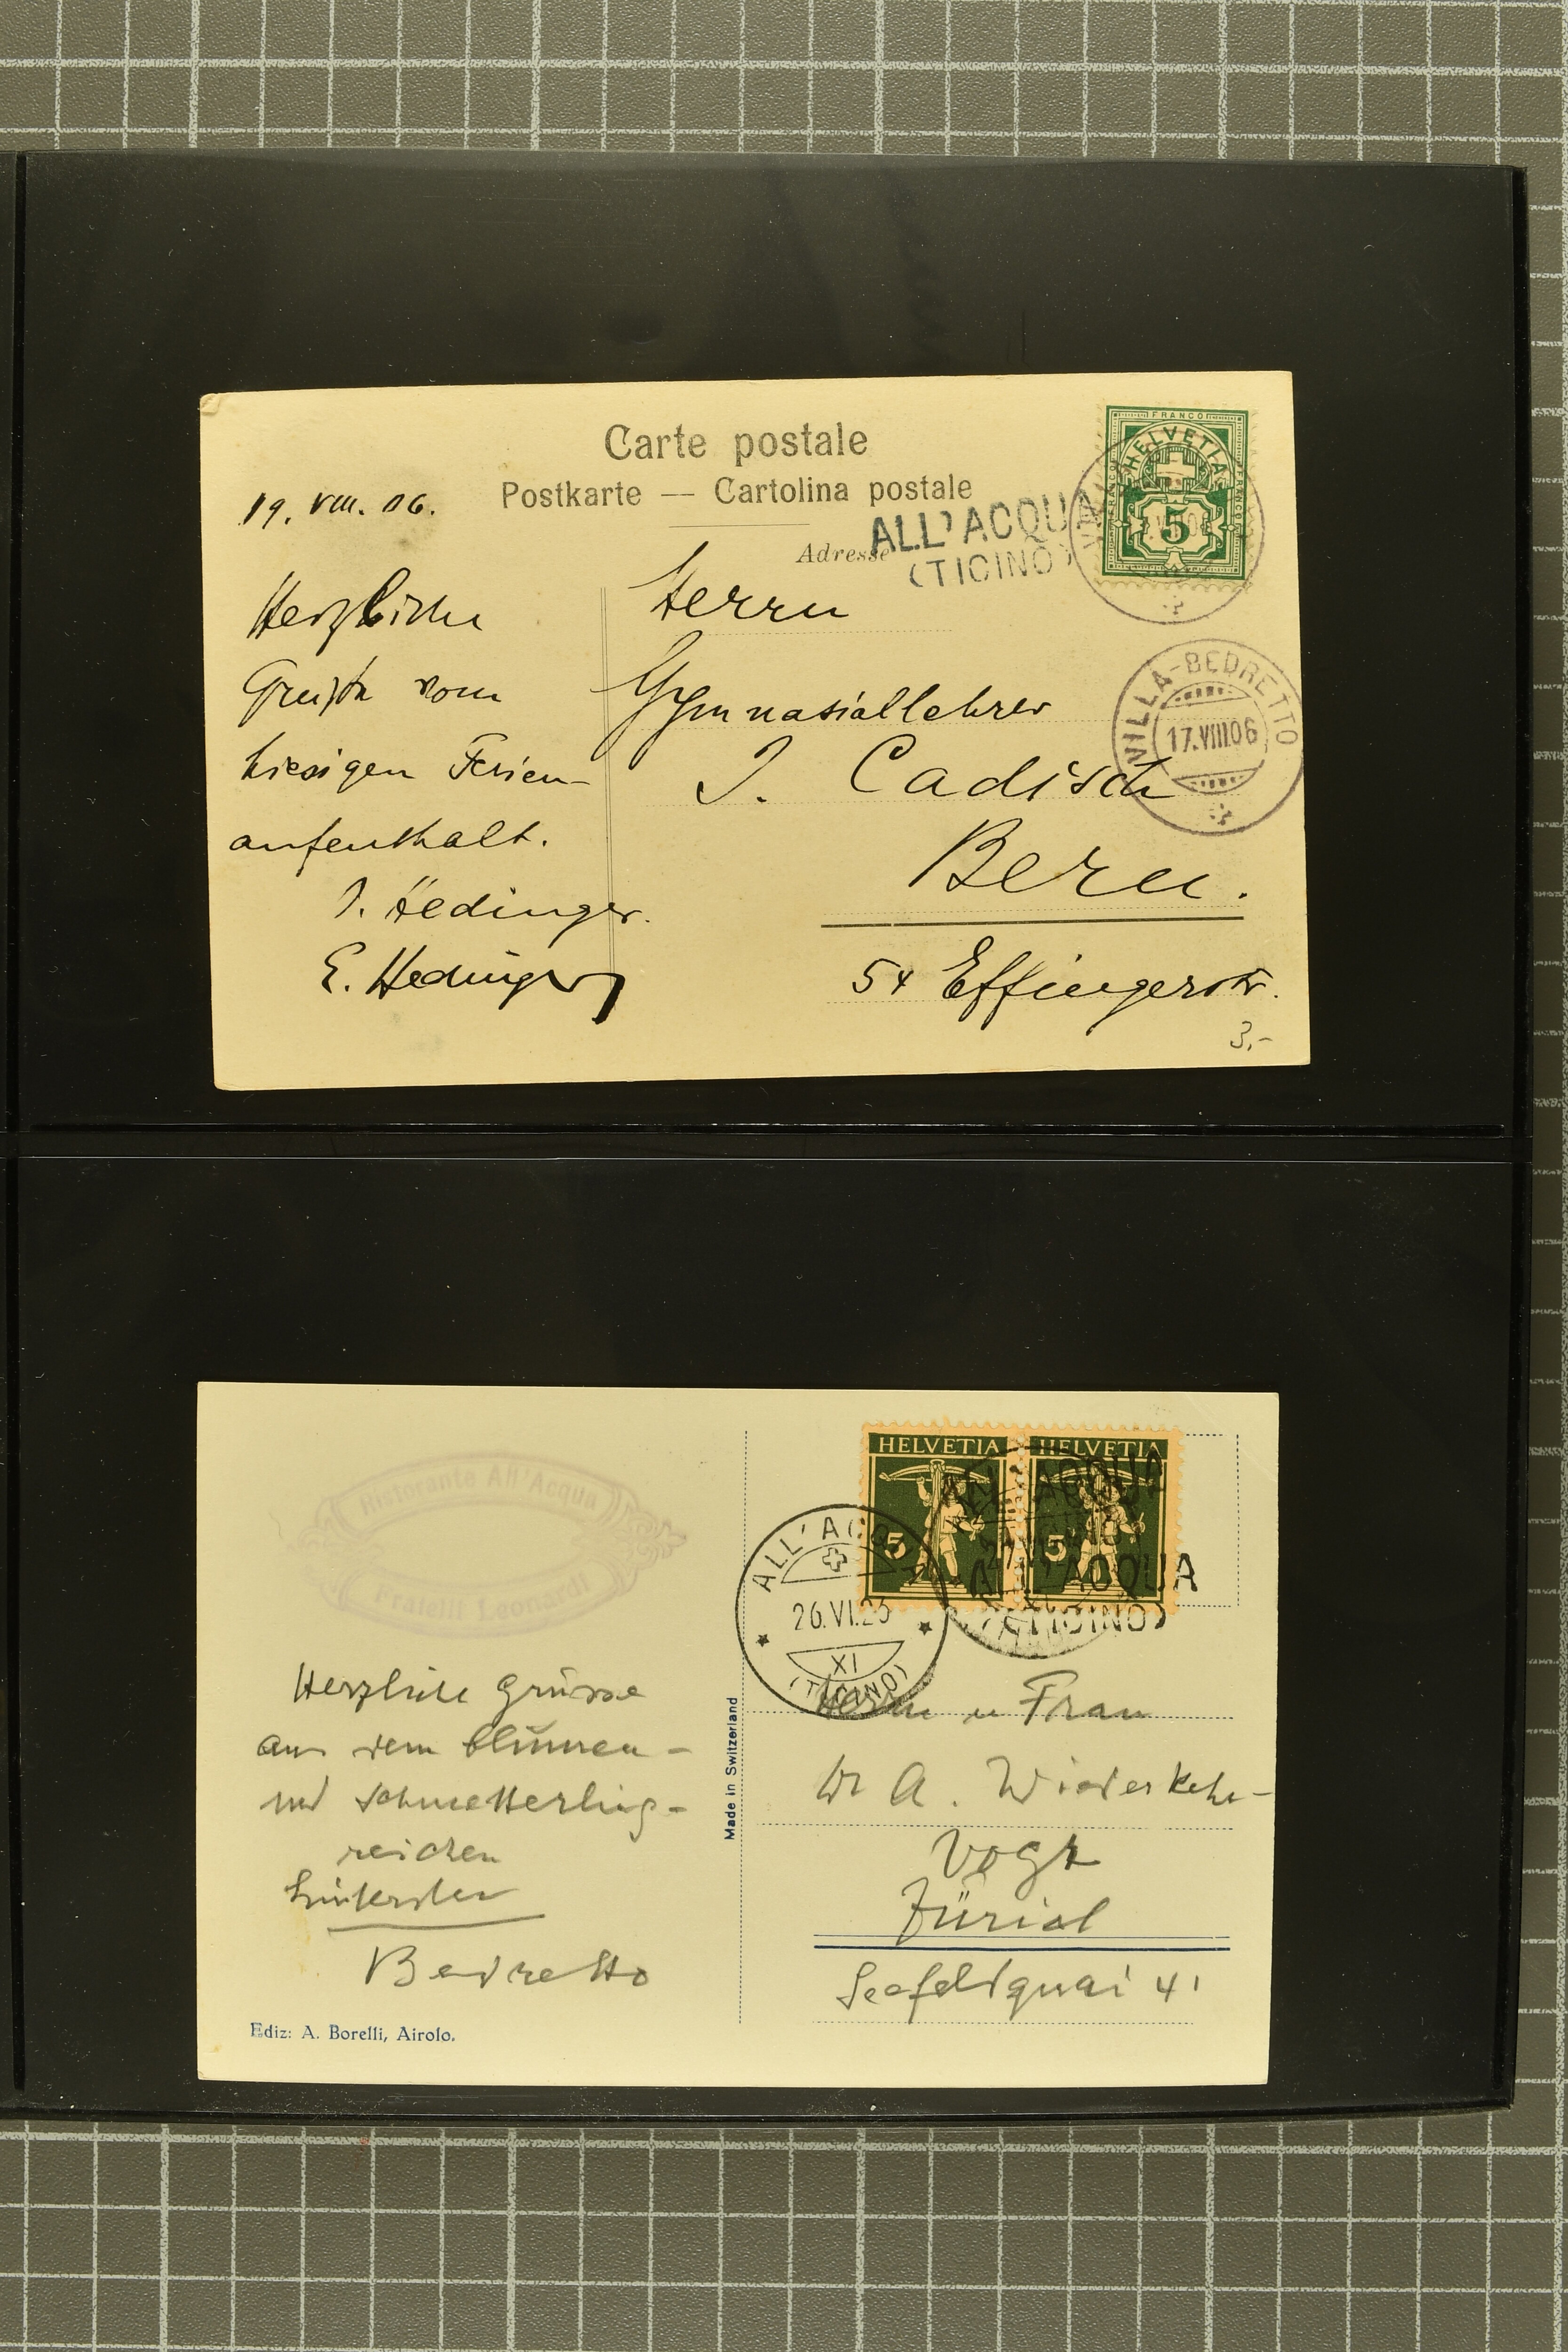 Carte postale
Postkarte — Cartolina postale
Adresse
ALL'ACQUA
(TICINO)
FRANCO
HELVETIA
5
VILLA-BEDRETTO
17.VIII.06
19. VIII. 06.
Herzliche
Grüsse vom
hiesigen Ferien-
aufenthalt.
J. Hedinger.
E. Hedinger
Herrn
Gymnasiallehrer
J. Cadisch
Bern.
54 Effingerstr.
3.-
Ristorante All'Acqua
Fratelli Leonardi
HELVETIA HELVETIA
5 5
ALL'ACQUA
ALL'ACQUA
(TICINO)
ALL'ACQUA
26.VI.
XI
(TICINO)
Herzliche Grüsse
aus dem blumen-
und schmetterling-
reichen
hintersten
Bedretto
Ediz: A. Borelli, Airolo.
Made in Switzerland
Herrn u Frau
Dr A. Wiederkehr-
Vogt
Zürich
Seefeldquai 41